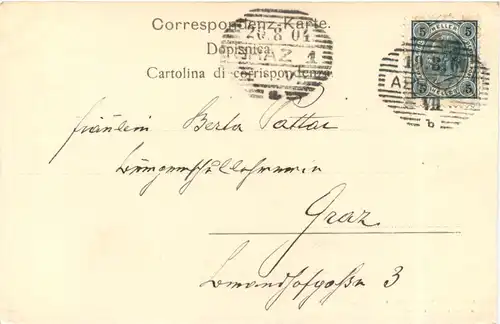 Correspondenz-Karte.
Dopisnica.
Cartolina di corrispondenza
20.8.04
GRAZ 1
5 HELLER 5
5 5
VII
b
Fräulein Berta Pattai
Bürgerschullehrerin
Graz
3